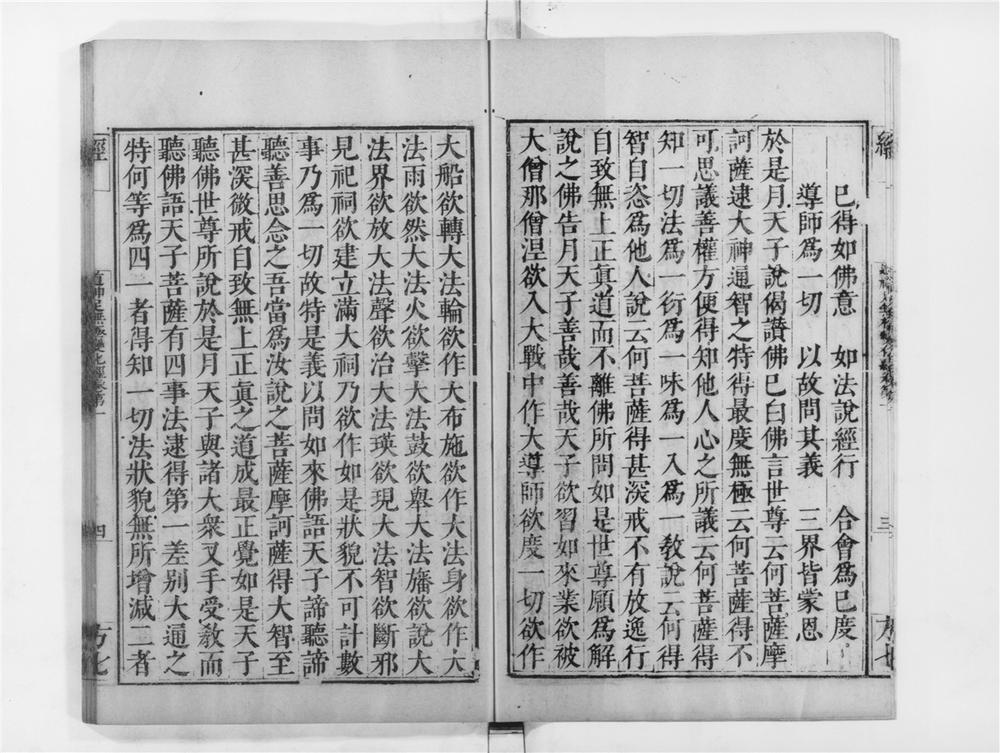 已得如佛意 如法說經行 合會爲已度
導師爲一切 以故問其義 三界皆蒙恩
於是月天子說偈讚佛已白佛言世尊云何菩薩摩
訶薩逮大神通智之特得最度無極云何菩薩得不
可思議善權方便得知他人心之所議云何菩薩得
知一切法爲一衍爲一味爲一入爲一敎說云何得
智自恣爲他人說云何菩薩得甚深戒不有放逸行
自致無上正眞道而不離佛所問如是世尊願爲解
說之佛告月天子善哉善哉天子欲習如來業欲被
大僧那僧涅欲入大戰中作大導師欲度一切欲作
大船欲轉大法輪欲作大布施欲作大法身欲作大
法雨欲然大法火欲擊大法鼓欲舉大法旛欲說大
法界欲放大法聲欲治大法瑛欲現大法智欲斷邪
見祀祠欲建立滿大祠乃欲作如是狀貌不可計數
事乃爲一切故特是義以問如來佛語天子諦聽諦
聽善思念之吾當爲汝說之菩薩摩訶薩得大智至
甚深微戒自致無上正眞之道成最正覺如是天子
聽佛世尊所說於是月天子與諸大衆叉手受敎而
聽佛語天子菩薩有四事法逮得第一差別大通之
特何等爲四一者得知一切法狀貌無所增減二者
經
道神足無極變化經卷第一
四
方七